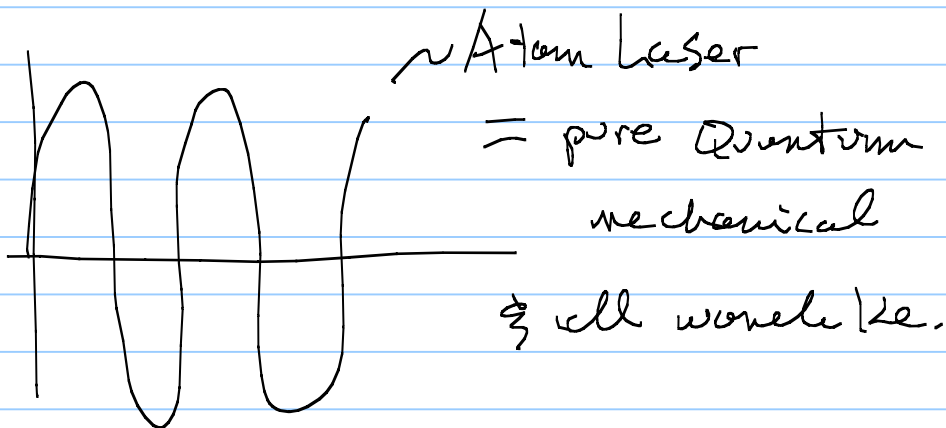 ~ Atom Laser
= pure Quantum
mechanical
& all wavelike.